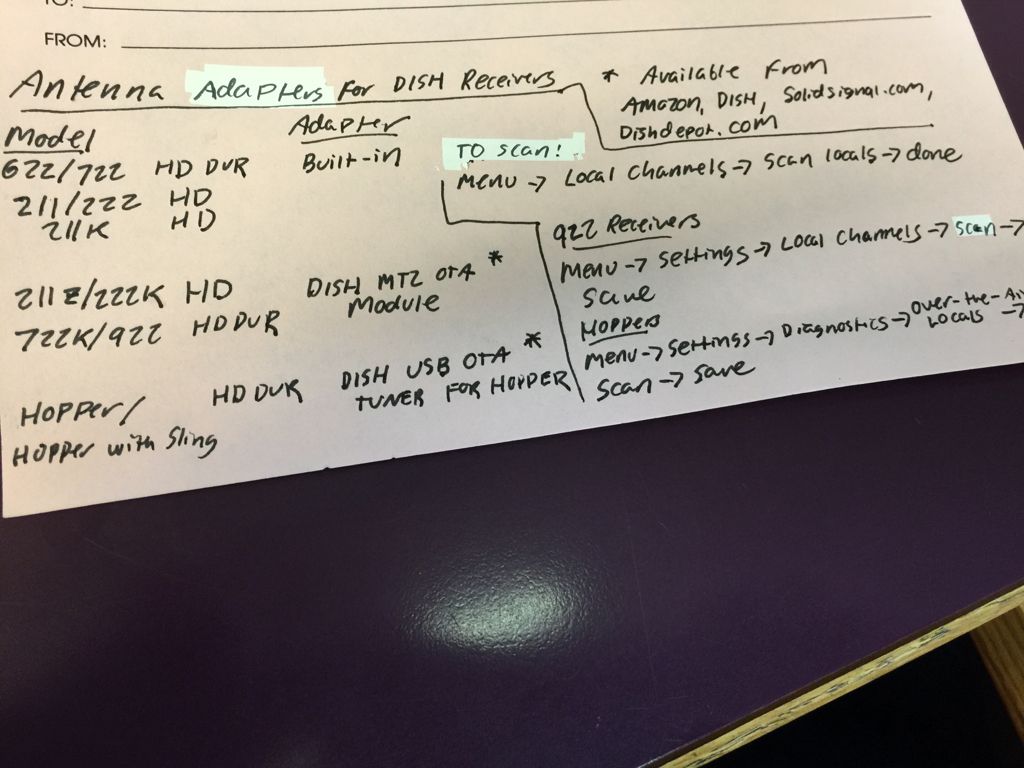 TO:
FROM:
Antenna Adapters For DISH Receivers
* Available From
Amazon, DISH, Solidsignal.com,
Dishdepot.com
Model Adapter
622/722 HD DVR Built-in
211/222 HD
211K HD
211Z/222K HD DISH MT2 OTA *
Module
722K/922 HD DVR
HOPPER/ HD DVR DISH USB OTA *
TUNER FOR HOPPER
HOPPER with Sling
TO scan!
Menu → Local Channels → Scan locals → done
922 Receivers
Menu → Settings → Local Channels → Scan →
Save
HOPPERS
Menu → Settings → Diagnostics → Over-the-Air
Locals →
Scan → Save